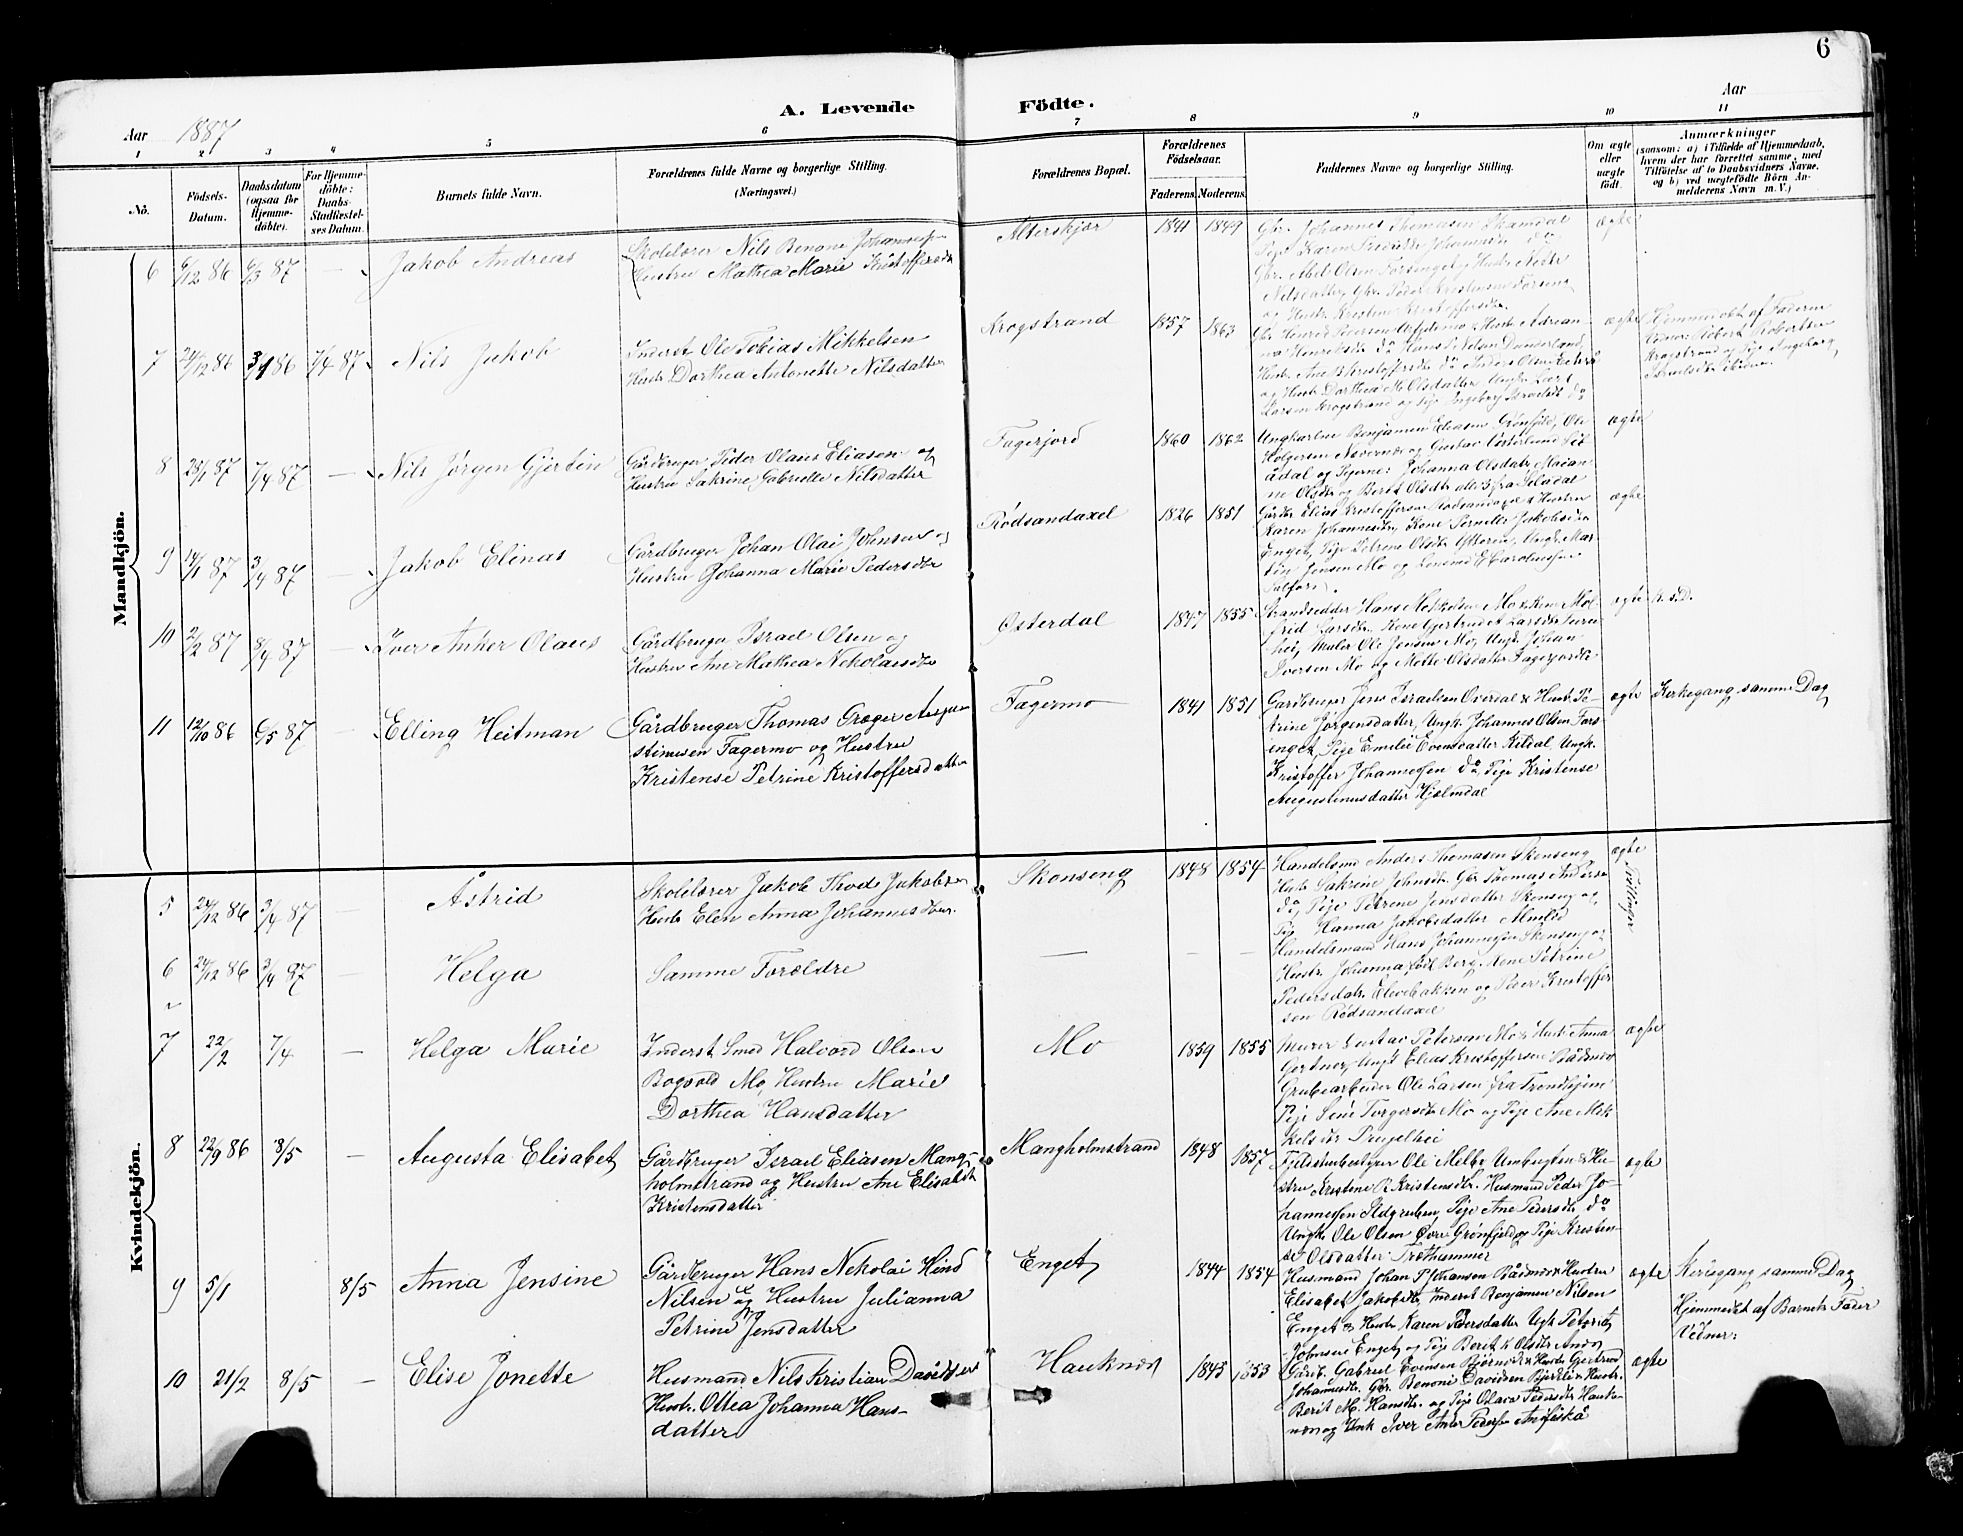 6
A. Levende Födte.
Aar 1887
Aar
1 2 3 4 5 6 7 8 9 10 11
Nö.
Födsels-
Datum.
Daabsdatum
(ogsaa for
Hjemme-
döbte).
For Hjemme-
döbte:
Daabs-
Stadfæstel-
ses Datum.
Barnets fulde Navn.
Forældrenes fulde Navne og borgerlige Stilling.
(Næringsvei.)
Forældrenes Bopæl.
Forældrenes
Födselsaar.
Faderens. Moderens.
Faddernes Navne og borgerlige Stilling.
Om ægte
eller
uægte
födt.
Anmærkninger
(saasom: a) i Tilfælde af Hjemmedaab,
hvem der har forrettet samme, med
Tilföielse af to Daabsvidners Navne,
og b) ved uægtefödte Börn An-
melderens Navn m. V.)
Mandkjön.
6 6/12 86 6/3 87 — Jakob Andreas
Skolelærer Nils Benoni Johannessen
Hustru Mathea Marie Kristoffersdtr
Alterskjær 1841 1849
Gbr. Johannes Thomasen
Pige Karen Fredrikke
Gbr. Abel Olsen Forsinget, Hustr
Nilsdatter, Gbr. Peder Kristensen
og Hustr. Kristine Kristoffersdtr.
ægte
7 24/12 86 3/1 86 7/4 87 Nils Jakob
Inderst Ole Tobias Mikkelsen
Hustr Dorthea Antonette Nilsdatter
Krogstrand 1857 1863
Hans Nilsen Dunderland,
Hustr. Ane Kristoffersdtr
og Hustr Dorthea M. Olsdatter
Larsen Krogstrand og Pige Ingeborg Israelsdtr do
ægte
Hjemmedøbt af Faderen
Vidner: Robert Robertsen
Krogstrand og Pige Ingeborg
8 28/1 87 7/4 87 — Nils Jørgen Gjertin
Gårdbruger Peder Olaus Eliasen og
Hustru Sakrine Gabrielle Nilsdatter
Fagerjord 1860 1862
Ungkarlene Benjamin Eliasen Grønfjeld, Ole
Holgersen og Gustav
og Pigerne: Johanna Olsdatr
ne Olsdtr og Berit Olsdtr alle 3 fra
ægte
9 14/1 87 3/4 87 — Jakob Elinas
Gårdbruger Johan Olai Johnsen og
Hustru Johanna Marie Pedersdtr
Rødsandaxel 1826 1851
Gårdbr Elias Kristoffersen Rødsandaxel & Hustru
Karen Johannesdtr, Kone Pernille Jakobsdtr
Enget, Pige Petrine Olsdtr Ytteren, Ungk. Mar-
tin Jensen Mo og
ægte
10 2/2 87 8/4 87 — Iver Anker Olaus
Gårdbruger Israel Olsen og
Hustru Ane Mathea Nikolaisdtr
Østerdal 1847 1855
Strandsidder Hans Mikkelsen Mo & Kone Møl-
frid Larsdtr. Kone Gjertrud Larsdtr
Maler Ole Jensen Mo, Ungk. Johan
Iversen Mo og Mette Olsdatter
ægte
K. s. D.
11 12/10 86 6/5 87 — Elling Heitman
Gårdbruger Thomas Greger Augu-
stinusen Fagermo og Hustru
Kristense Petrine Kristoffersdatter
Fagermo 1841 1851
Gårdbruger Jens Israelsen Overdal & Hustr. Pe-
trine Jørgensdatter, Ungk. Johannes Olsen Fors-
inget, Pige Emilie Evensdatter Kildal, Ungk.
Kristoffer Johannessen do, Pige Kristense
Augustinusdatter Hjælmdal
ægte
Kirkegang samme Dag
Kvindekjön.
5 24/12 86 3/4 87 — Åstrid
Skolelærer Jakob Thode Jakobsen
Hustr Elen Anna Johannesdtr.
Skonseng 1848 1854
Handelsmd Anders Thomasen Skonseng
Hustr Sakrine Johnsdtr Gbr Thomas Anders
do, Pige Petrine Jensdatter Skonseng og
Pige Hanna Jakobsdatter
ægte
Tvillinger
6 24/12 86 3/4 87 — Helga
Samme Forældre
— — —
Handelsmand Hans Johannessen Skonseng og
Hustr. Johanna, født Berg. Kone Petrine
Pedersdatr. Elvebakken og Peder Kristoffer
sen Rødsandaxel
7 22/2 7/4 — Helga Marie
Inderst Smed Halvord Olsen
Bogvold Mo, Hustru Marie
Dorthea Hansdatter
Mo 1859 1855
Murer Gustav Petersen Mo & Hustr Anna
Gertner, Ungk Elias Kristoffersen Båsmo
Grubearbeider Ole Larsen fra Trondhjem
Pige Sine Torgersdtr Mo og Pige Ane Mik-
kelsdtr
ægte
8 22/9 86 8/5 — Augusta Elisabet
Gårdbruger Israel Eliasen Mang-
holmstrand og Hustru Ane Elisabet
Kristensdatter
Mangholmstrand 1848 1857
Fjeldstuebestyrer Ole Melby Umbugten & Hu-
stru Kristine B. Kristensdtr. Husmand Peder Jo-
hannessen Ildgruben, Pige Ane Pedersdtr do
Ungk Ole Olsen Øvre Grønfjeld og Pige Kristen-
se Olsdatter
ægte
9 5/1 8/5 Anna Jensine
Gårdbruger Hans Nikolai Hind
Nilsen og Hustru Julianna
Petrine Jensdatter
Enget 1844 1854
Husmand Johan P. Johansen Båsmo & Hustru
Elisabet Jakobsdtr, Inderst Benjamin Nilsen
Enget & Hustr Karen Pedersdatter Ungk Peter
Johnsen Enget og Pige Berit K Olsdtr
ægte
Kirkegang samme Dag
Hjemmedøbt af Barnets Fader
Vidner:
10 21/2 8/5 — Elise Jonette
Husmand Nils Kristian Davidsen
Hustr. Ottea Johanna Hans-
datter
Hauknes 1843 1853
Gårdb. Gabriel Evensen & Hustr Gjertrud
Johannesdtr. Gbr. Benoni Davidsen Bjerkli & Hustr.
Berit M. Hansdtr. og Pige Olava Pedersdtr Hauk-
nes og Ungk Iver Ander Pedersen
ægte